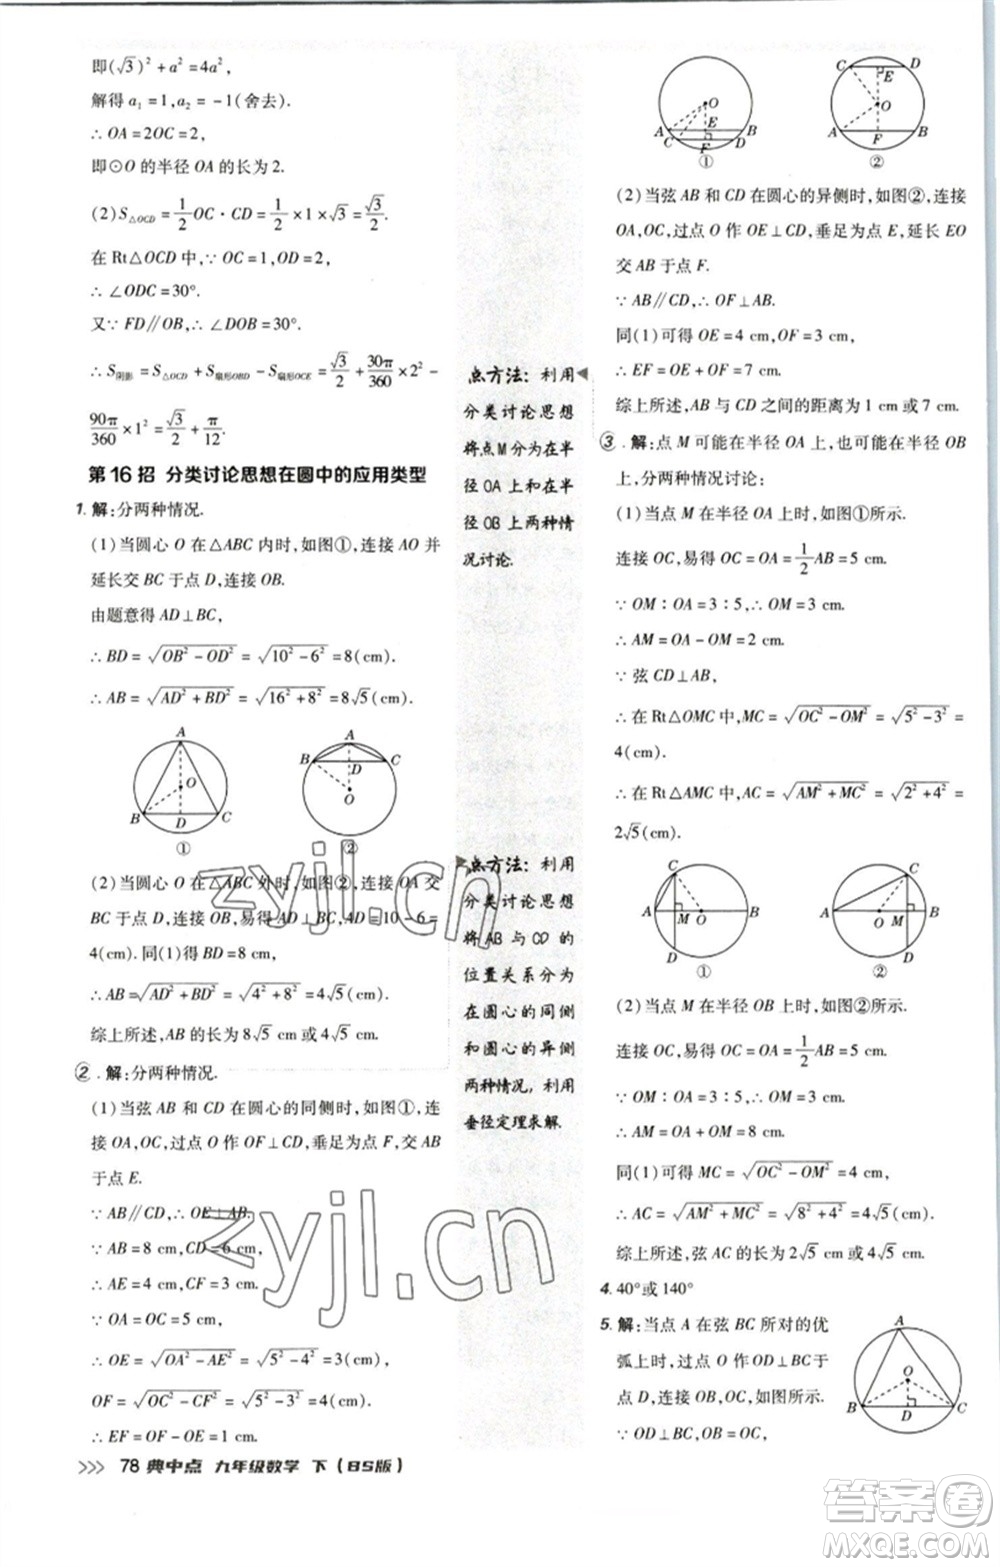 即(√3)²+a²=4a²,
解得 a₁=1,a₂=-1(舍去).
∴ OA=2OC=2,
即⊙O 的半径 OA 的长为 2.
(2)S△OCD=1/2 OC·CD=1/2×1×√3=√3/2.
在 Rt△OCD 中,∵ OC=1,OD=2,
∴ ∠ODC=30°.
又∵ FD∥OB,∴ ∠DOB=30°.
∴ S阴影=S△OCD+S扇形OBD-S扇形OCE=√3/2+30π/360×2²-
90π/360×1²=√3/2+π/12.
第 16 招 分类讨论思想在圆中的应用类型
1. 解:分两种情况.
(1)当圆心 O 在△ABC 内时,如图①,连接 AO 并
延长交 BC 于点 D,连接 OB.
由题意得 AD⊥BC,
∴ BD=√(OB²-OD²)=√(10²-6²)=8(cm).
∴ AB=√(AD²+BD²)=√(16²+8²)=8√5(cm).
A
O
B D C
①
A
B D C
O
②
(2)当圆心 O 在△ABC 外时,如图②,连接 OA 交
BC 于点 D,连接 OB,易得 AD⊥BC,AD=10-6=
4(cm). 同(1)得 BD=8 cm.
∴ AB=√(AD²+BD²)=√(4²+8²)=4√5(cm).
综上所述,AB 的长为 8√5 cm 或 4√5 cm.
2. 解:分两种情况.
(1)当弦 AB 和 CD 在圆心的同侧时,如图①,连
接 OA,OC,过点 O 作 OF⊥CD,垂足为点 F,交 AB
于点 E.
∵ AB∥CD,∴ OE⊥AB.
∵ AB=8 cm,CD=6 cm,
∴ AE=4 cm,CF=3 cm.
∵ OA=OC=5 cm,
∴ OE=√(OA²-AE²)=√(5²-4²)=3(cm),
OF=√(OC²-CF²)=√(5²-3²)=4(cm).
∴ EF=OF-OE=1 cm.
78 典中点 九年级数学 下(BS版)
点方法: 利用
分类讨论思想
将点M分为在半
径OA上和在半
径OB上两种情
况讨论.
点方法: 利用
分类讨论思想
将AB与CD的
位置关系分为
在圆心的同侧
和圆心的异侧
两种情况,利用
垂径定理求解.
O
A E B
C F D
①
C E D
O
A F B
②
(2)当弦 AB 和 CD 在圆心的异侧时,如图②,连接
OA,OC,过点 O 作 OE⊥CD,垂足为点 E,延长 EO
交 AB 于点 F.
∵ AB∥CD,∴ OF⊥AB.
同(1)可得 OE=4 cm,OF=3 cm.
∴ EF=OE+OF=7 cm.
综上所述,AB 与 CD 之间的距离为 1 cm 或 7 cm.
3. 解:点 M 可能在半径 OA 上,也可能在半径 OB
上,分类讨论如下:
(1)当点 M 在半径 OA 上时,如图①所示.
连接 OC,易得 OC=OA=1/2 AB=5 cm.
∵ OM∶OA=3∶5,∴ OM=3 cm.
∴ AM=OA-OM=2 cm.
∵ 弦 CD⊥AB,
∴ 在 Rt△OMC 中,MC=√(OC²-OM²)=√(5²-3²)=
4(cm).
∴ 在 Rt△AMC 中,AC=√(AM²+MC²)=√(2²+4²)=
2√5(cm).
C
A M O B
D
①
C
A O M B
D
②
(2)当点 M 在半径 OB 上时,如图②所示.
连接 OC,易得 OC=OA=1/2 AB=5 cm.
∵ OM∶OA=3∶5,∴ OM=3 cm.
∴ AM=OA+OM=8 cm.
同(1)可得 MC=√(OC²-OM²)=4 cm,
∴ AC=√(AM²+MC²)=√(8²+4²)=4√5(cm).
综上所述,弦 AC 的长为 2√5 cm 或 4√5 cm.
4. 40°或 140°
5. 解:当点 A 在弦 BC 所对的优
弧上时,过点 O 作 OD⊥BC 于
点 D,连接 OB,OC,如图所示.
∵ OD⊥BC,
A
O
B D C
zyjl.cn
zyjl.cn
答案圈
MXQE.COM